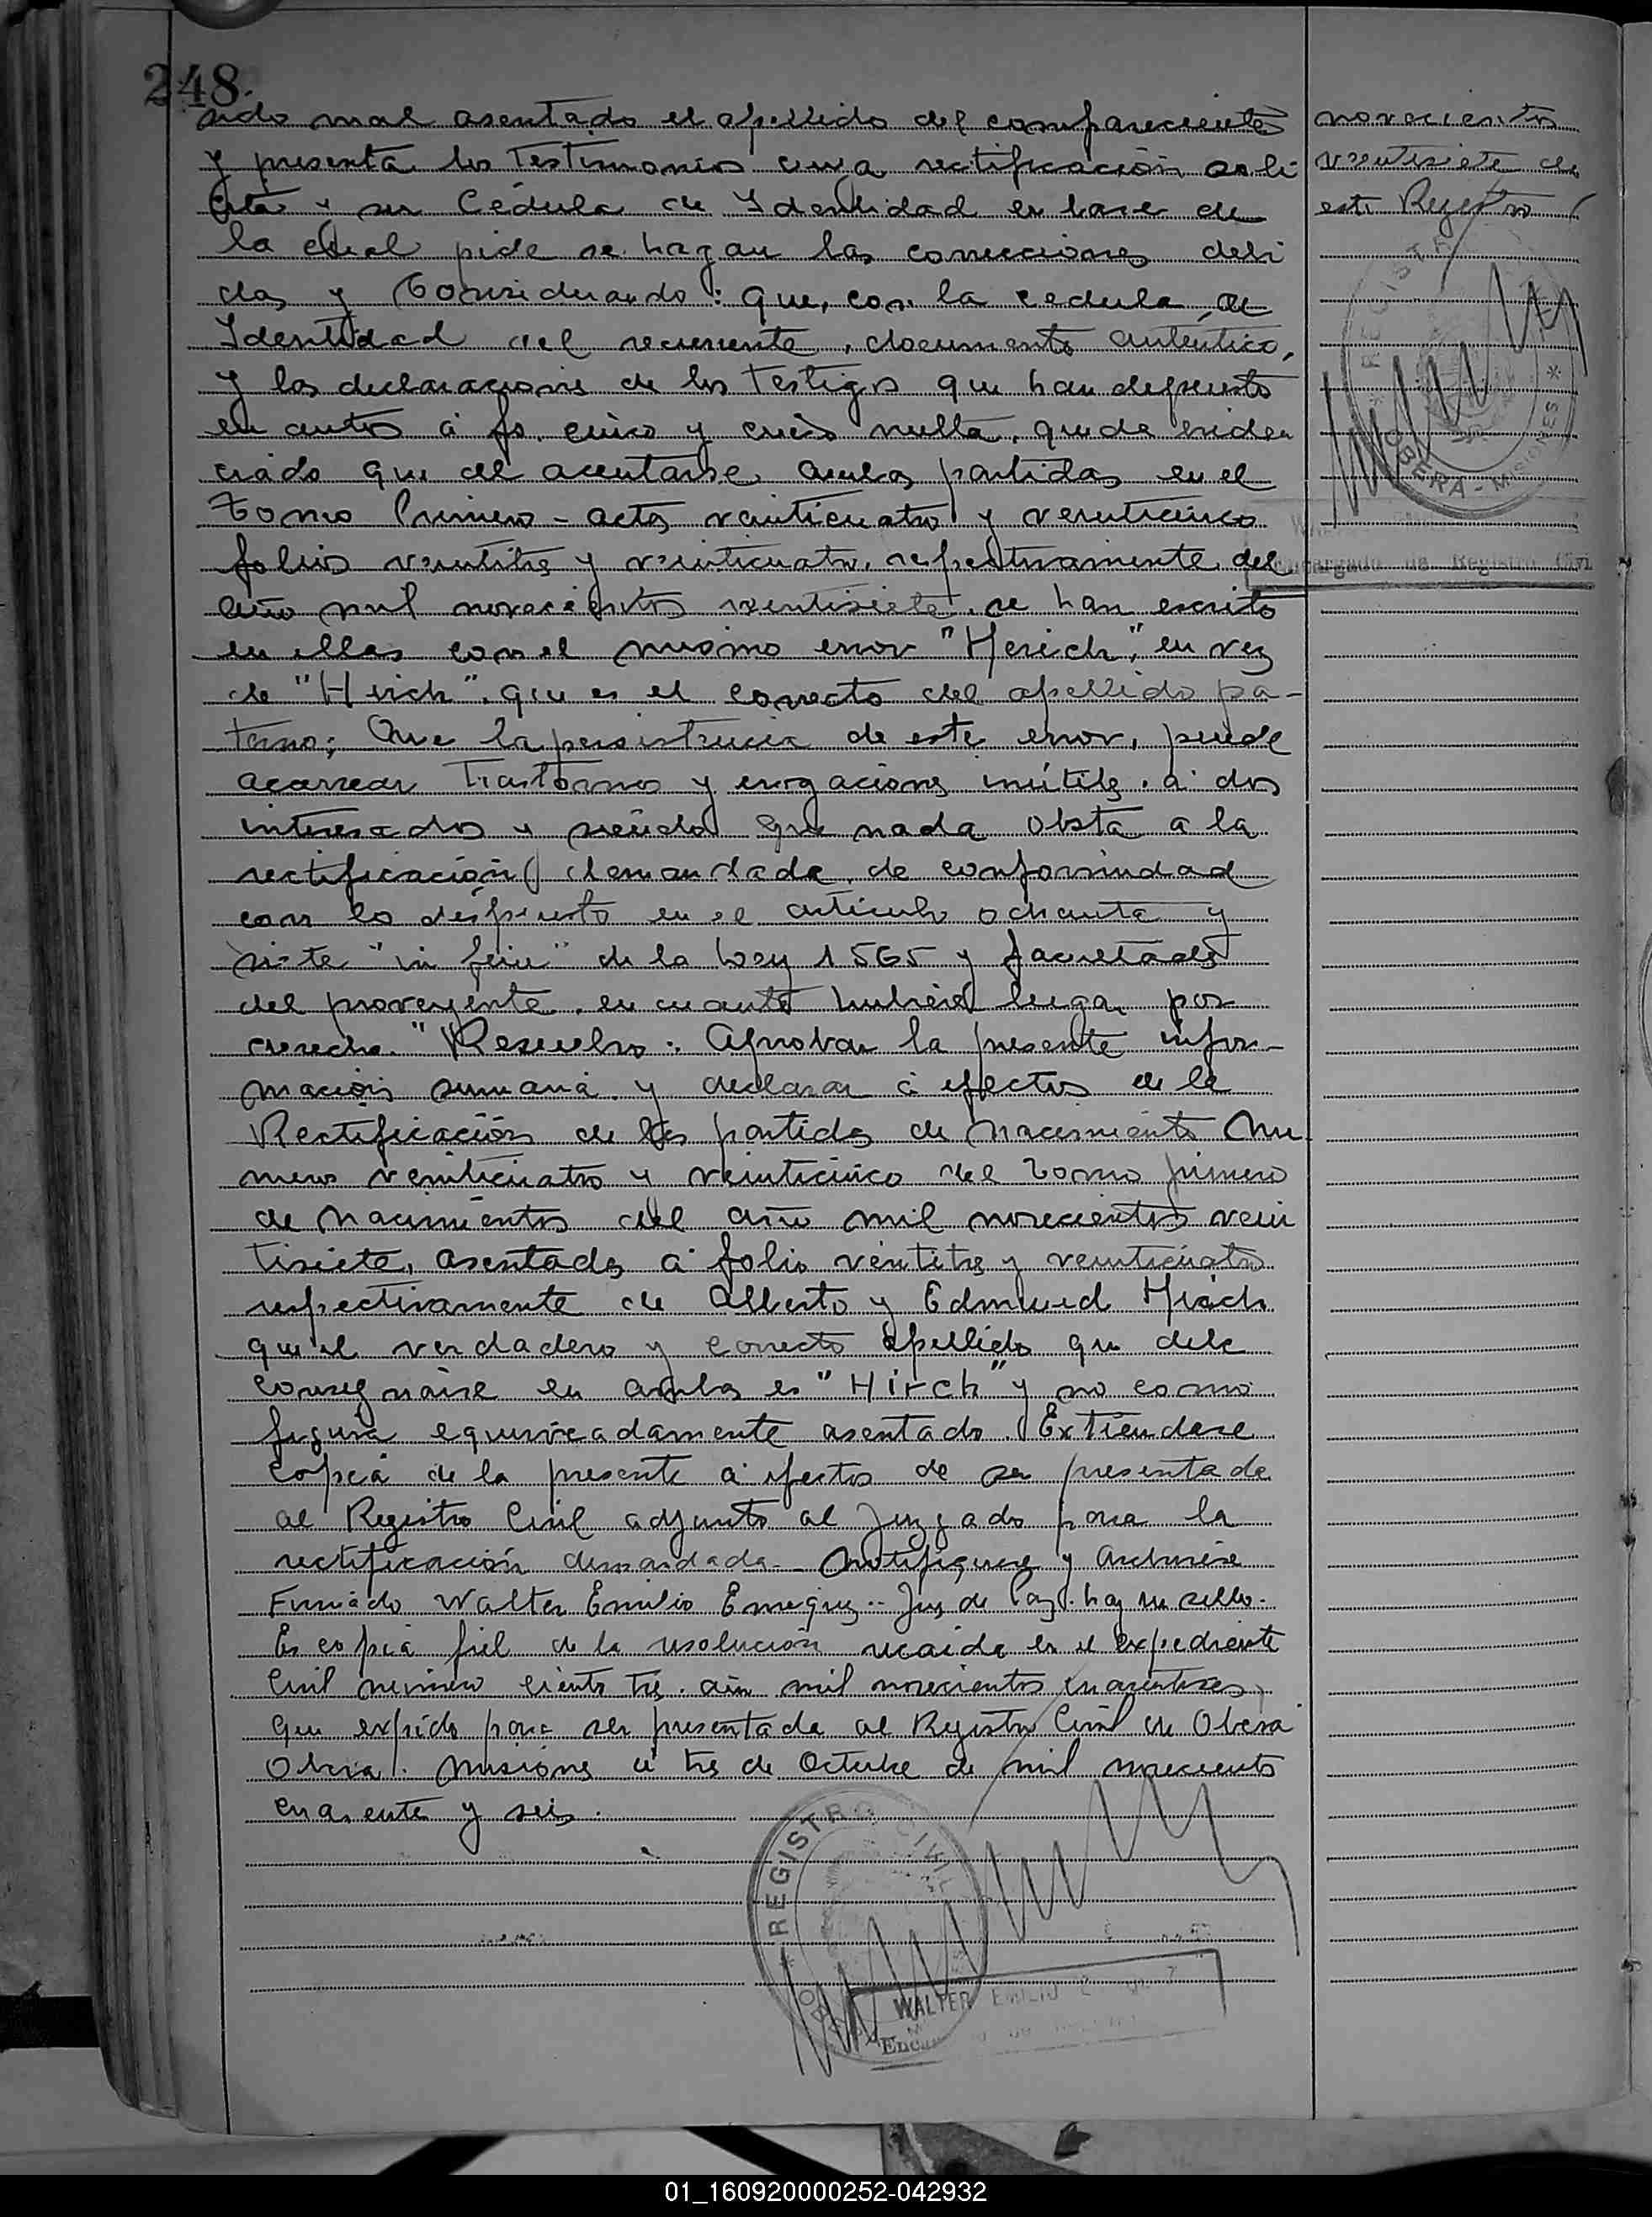 248.
sido mal asentado el apellido del compareciente
y presenta los testimonios cuya rectificación soli
cita y su Cédula de Identidad en base de
la cual pide se hagan las correcciones debi
das y Considerando: que, con la cedula de
Identidad del recurrente, documento auténtico,
y las declaraciones de los testigos que han depuesto
en autos á fs. cinco y cinco vuelta, queda eviden
ciado que al acentarse ambas partidas en el
Tomo Primero - actas veinticuatro y veinticinco
folios veintitres y veinticuatro, respectivamente del
año mil novecientos veintisiete, se han escrito
en ellas con el mismo error "Herich", en vez
de "Hirch", que es el correcto del apellido pa-
terno; Que la persistencia de este error, puede
acarrear trastornos y erogaciones inútiles, a los
interesados y siendo que nada obsta a la
rectificación demandada, de conformidad
con lo dispuesto en el articulo ochenta y
siete "in fine" de la Ley 1565 y facultades
del proveyente, en cuanto hubiere lugar por
derecho. "Resuelvo: Aprobar la presente infor-
mación sumaria y declarar á efectos de la
Rectificación de las partidas de nacimiento Nu
mero veinticuatro y veinticinco del tomo primero
de nacimientos del año mil novecientos vein
tisiete, asentadas a folio veintitres y veinticuatro
respectivamente de Alberto y Edmund Hirch
que el verdadero y correcto apellido que debe
consignarse en ambas es "Hirch" y no como
figura equivocadamente asentado. Extiendase
copia de la presente a efectos de ser presentada
al Registro Civil adjunto al Juzgado para la
rectificación demandada - Notifiquese y Archivese
Firmado Walter Emilio - Juez de Paz. hay un sello.
Es copia fiel de la resolución recaida en el expediente
Civil número ciento tres. año mil novecientos cuarentiseis,
que expido para ser presentada al Registro Civil de Oberá
Oberá. Misiones á tres de Octubre de mil novecientos
cuarenta y seis.
novecientos
veintisiete de
este Registro
REGISTRO
OBERA - MISIONES
Encargado de Registro Civil
REGISTRO CIVIL
WALTER EMILIO
01_160920000252-042932